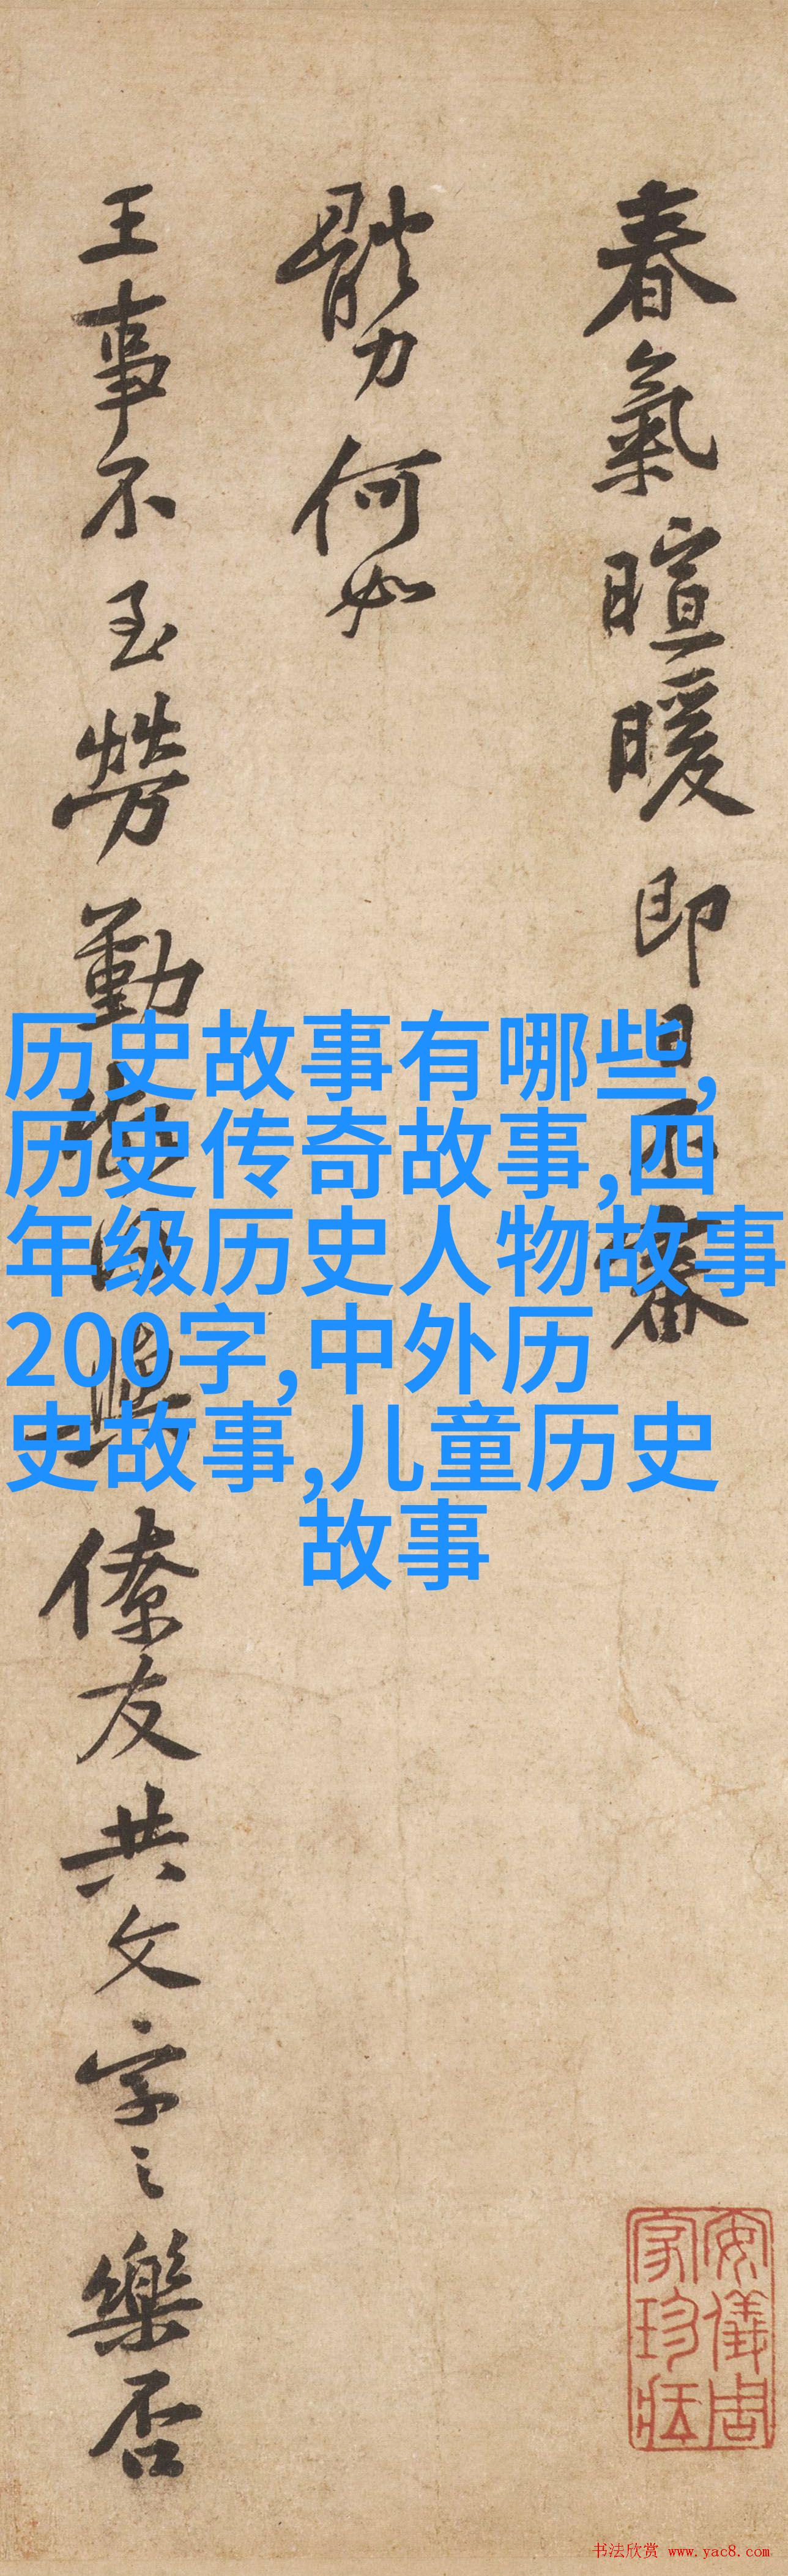 春氣暄暖即日不審
體力何如
王事不至勞勤
僚友共文字之樂否
历史故事有哪些,
历史传奇故事,四
年级历史人物故事
200字,中外历
史故事,儿童历史
故事
安儀周
家珍藏
书法欣赏 www.yac8.com